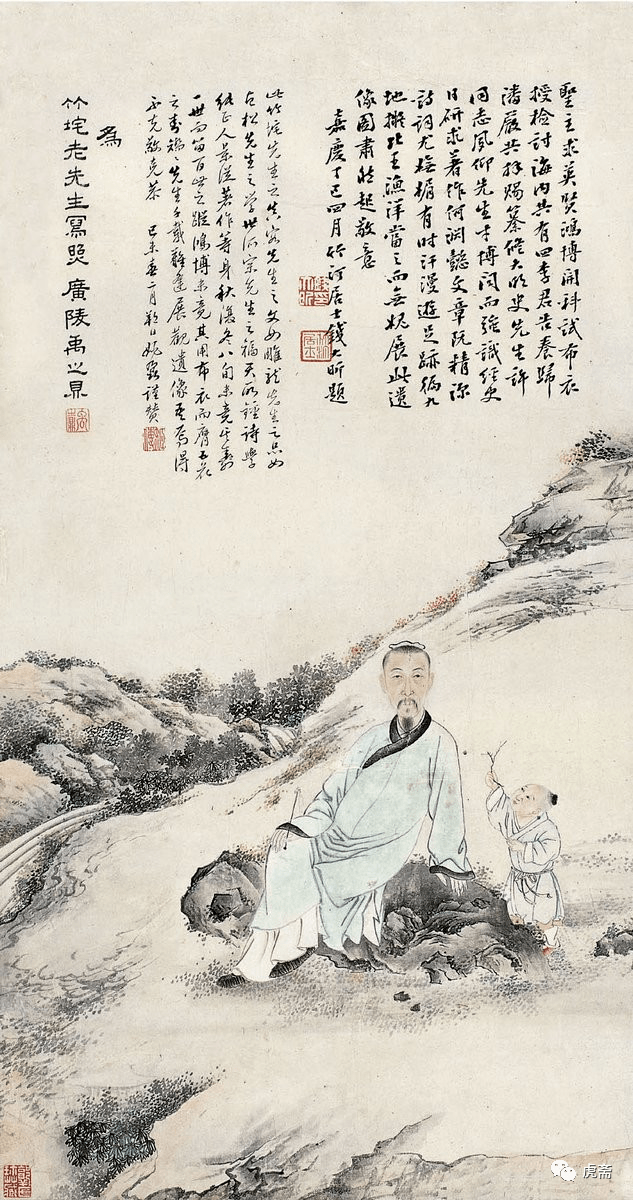 聖主求英賢鴻博開科試布衣
授檢討海內共有四李君告養歸
潘嚴共拜賜纂修大明史先生許
同志夙仰先生才博聞而強識經史
日研求著作何淵懿文章既精深
詩詞尤有時汗漫遊足跡徧九
地擬北王漁洋當之而無愧展此遺
像圖肅然起敬意
嘉慶丁巳四月竹汀居士錢大昕題
此竹垞先生之真容先生之文如雕龍先生之品如
古松先生之學世所宗先生之福天所鍾詩學
純正人景從著作等身秋復冬八旬未竟
一世而留百世之蹤鴻博未竟其用布衣而膺五花
之封先生千載難逢展觀遺像焉得
不克敬克恭 己未春二月朔日姚鼐謹贊
為
竹垞老先生寫照 廣陵禹之鼎
虎斋